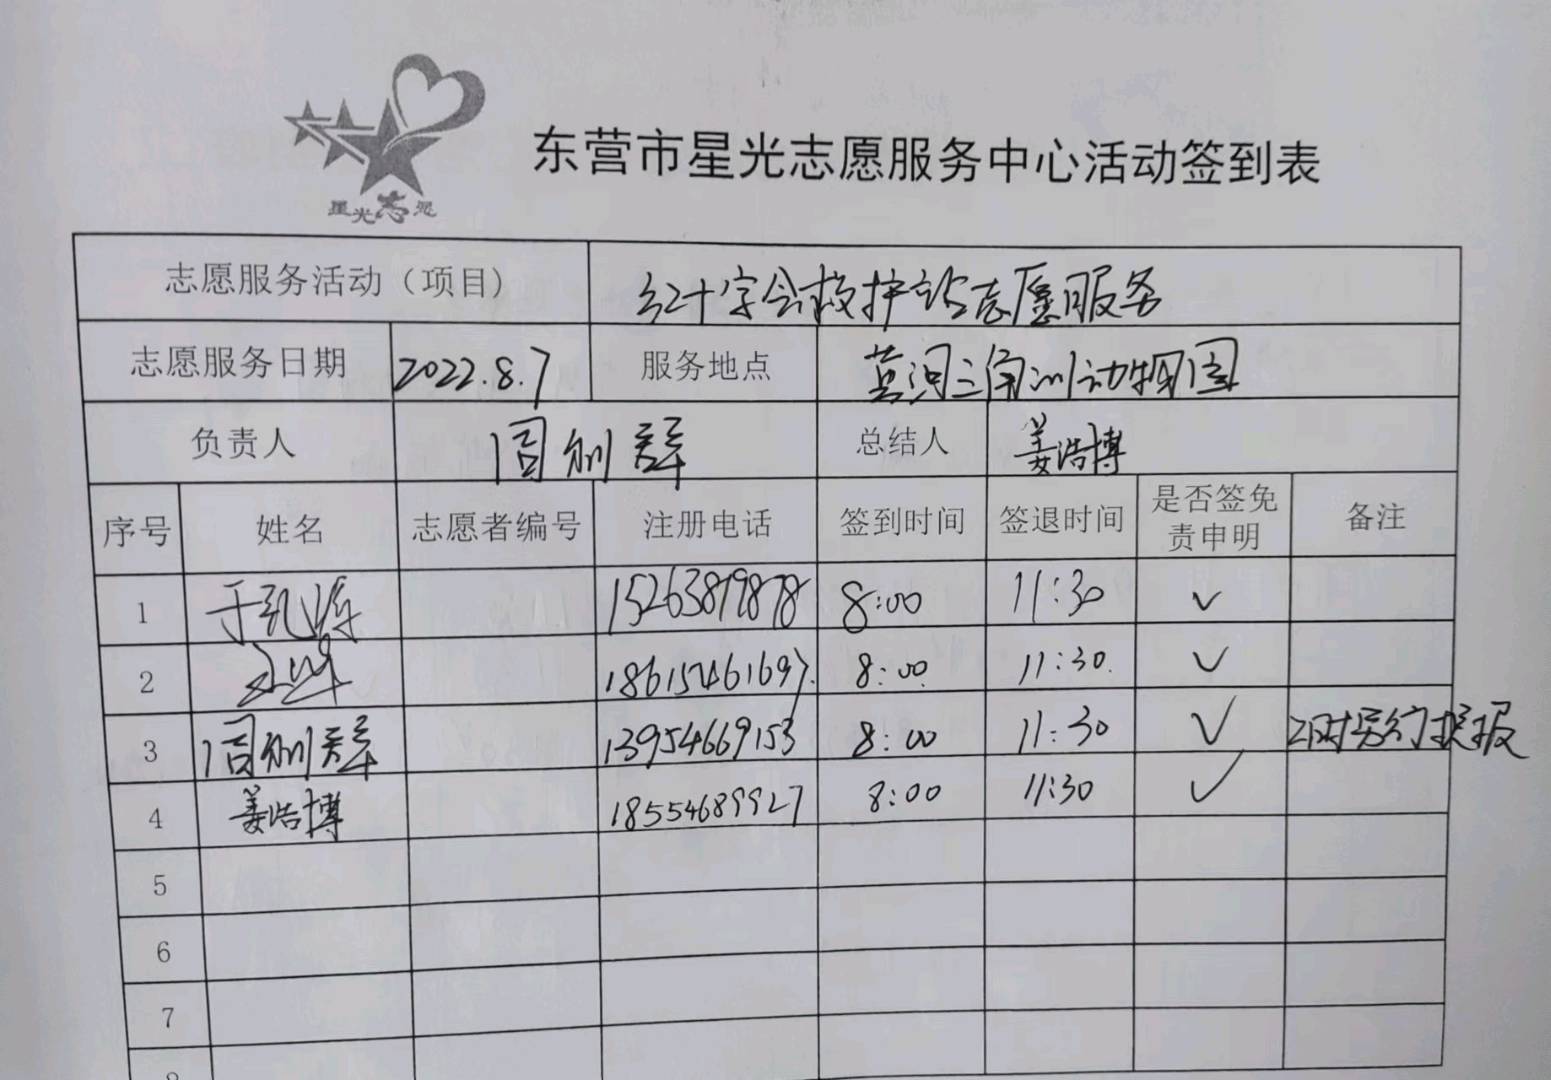 星光志愿
东营市星光志愿服务中心活动签到表
志愿服务活动（项目） 红十字会救护站志愿服务
志愿服务日期 2022.8.7 服务地点 黄河三角洲动物园
负责人 周俐群 总结人 姜浩博
序号 姓名 志愿者编号 注册电话 签到时间 签退时间 是否签免责申明 备注
1 于 15263819878 8:00 11:30 ✓
2 18615461697. 8:00 11:30. ✓
3 周俐群 13954669153 8:00 11:30 ✓
4 姜浩博 18554689927 8:00 11:30 ✓
5
6
7